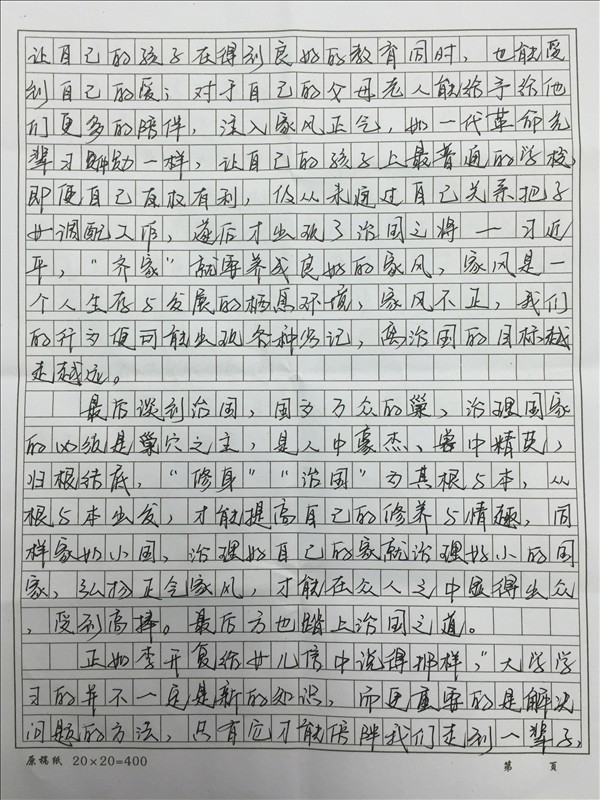 让自己的孩子在得到良好的教育同时，也能受
到自己的爱；对于自己的父母老人能给予给他
们更多的陪伴，注入家风正气，如一代革命先
辈习仲勋一样，让自己的孩子上最普通的学校，
即便自己有权有利，仅从未通过自己关系把子
女调配工作，遂后才出现了治国之将—习近
平，“齐家”就要养成良好的家风，家风是一
个人生存与发展的栖息环境，家风不正，我们
的行为便可能出现各种岔记，离治国的国标越
走越远。
最后谈到治国，国为万众的巢，治理国家
的必须是巢穴之主，是人中豪杰、兽中精英，
归根结底，“修身”“治国”为其根与本，从
根与本出发，才能提高自己的修养与情趣，同
样家如小国，治理好自己的家就治理好小的国
家，弘扬正气家风，才能在众人之中显得出众
，受到高捧。最后方也踏上治国之道。
正如李开复给女儿信中说得那样，“大学学
习的并不一定是新的知识，而更重要的是解决
问题的方法，只有它才能陪伴我们走到一辈子，
原稿纸 20×20=400 第 页